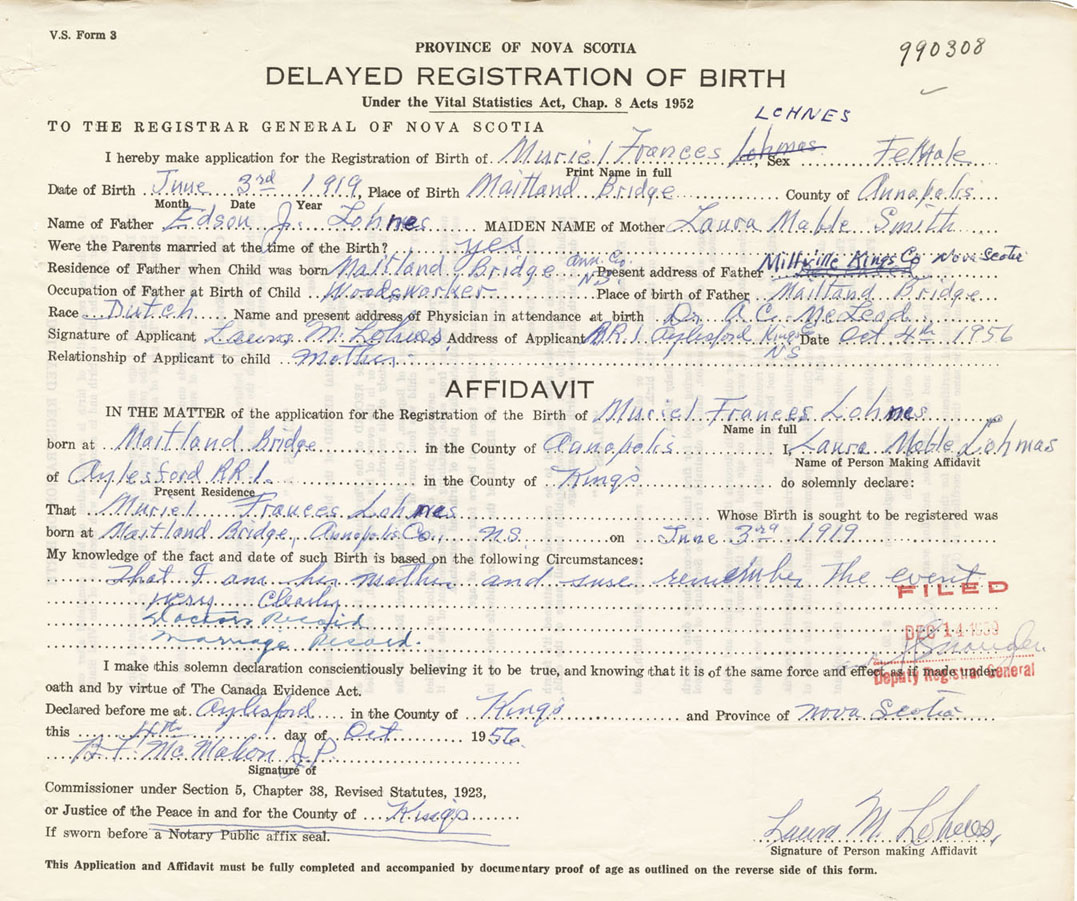 V.S. Form 3
990308
PROVINCE OF NOVA SCOTIA
DELAYED REGISTRATION OF BIRTH
Under the Vital Statistics Act, Chap. 8 Acts 1952
LOHNES
TO THE REGISTRAR GENERAL OF NOVA SCOTIA
I hereby make application for the Registration of Birth of Muriel Frances Lohmas, Sex FeMale
Print Name in full
Date of Birth June 3rd 1919, Place of Birth Maitland Bridge County of Annapolis
Month Date Year
Name of Father Edson J. Lohnes MAIDEN NAME of Mother Laura Mable Smith
Were the Parents married at the time of the Birth? yes
Residence of Father when Child was born Maitland Bridge Ann. Co. N.S. Present address of Father Millville Kings Co Nova Scotia
Occupation of Father at Birth of Child Woodsworker Place of birth of Father Maitland Bridge
Race Dutch Name and present address of Physician in attendance at birth Dr. A.C. McLead
Signature of Applicant Laura M. Lohnes Address of Applicant R.R.1. Aylesford Kings Co N.S Date Oct 4th 1956
Relationship of Applicant to child Mother
AFFIDAVIT
IN THE MATTER of the application for the Registration of the Birth of Muriel Frances Lohnes
Name in full
born at Maitland Bridge in the County of Annapolis I Laura Mable Lohmas
Name of Person Making Affidavit
of Aylesford R.R.1. in the County of Kings do solemnly declare:
Present Residence
That Muriel Frances Lohnes Whose Birth is sought to be registered was
born at Maitland Bridge, Annapolis Co., N.S. on June 3rd 1919
My knowledge of the fact and date of such Birth is based on the following Circumstances:
That I am her mother and remember the event
very Clearly
Doctors Record
Marriage Record.
FILED
DEC 14 1959
Deputy Registrar General
I make this solemn declaration conscientiously believing it to be true, and knowing that it is of the same force and effect as if made under
oath and by virtue of The Canada Evidence Act.
Declared before me at Aylesford in the County of Kings and Province of Nova Scotia
this 4th day of Oct 1956
McMahon J.P.
Signature of
Commissioner under Section 5, Chapter 38, Revised Statutes, 1923,
or Justice of the Peace in and for the County of Kings
If sworn before a Notary Public affix seal.
Laura M. Lohnes
Signature of Person making Affidavit
This Application and Affidavit must be fully completed and accompanied by documentary proof of age as outlined on the reverse side of this form.